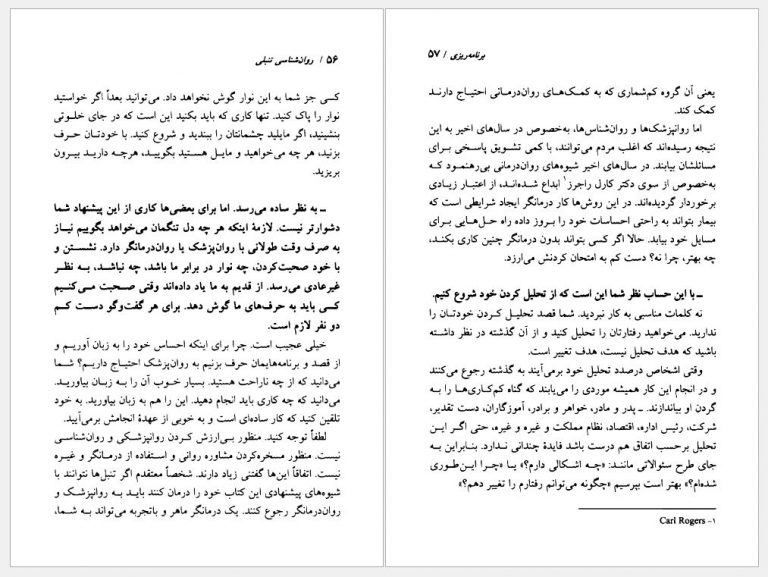 ۵۶ / روان‌شناسی تنبلی
کسی جز شما به این نوار گوش نخواهد داد. می‌توانید بعداً اگر خواستید
نوار را پاک کنید. تنها کاری که باید بکنید این است که در جای خلوتی
بنشینید، اگر مایلید چشمانتان را ببندید و شروع کنید. با خودتان حرف
بزنید، هر چه می‌خواهید و مایل هستید بگویید، هرچه دارید بیرون
بریزید.
ـ به نظر ساده می‌رسد. اما برای بعضی‌ها کاری از این پیشنهاد شما
دشوارتر نیست. لازمهٔ اینکه هر چه دل تنگمان می‌خواهد بگوییم نیاز
به صرف وقت طولانی با روان‌پزشک یا روان‌درمانگر دارد. نشستن و
با خود صحبت‌کردن، چه نوار در برابر ما باشد، چه نباشد، به نظر
غیرعادی می‌رسد. از قدیم به ما یاد داده‌اند وقتی صحبت می‌کنیم
کسی باید به حرف‌های ما گوش دهد. برای هر گفت‌وگو دست کم
دو نفر لازم است.
خیلی عجیب است. چرا برای اینکه احساس خود را به زبان آوریم و
از قصد و برنامه‌هایمان حرف بزنیم به روان‌پزشک احتیاج داریم؟ شما
می‌دانید که از چه ناراحت هستید. بسیار خوب آن را به زبان بیاورید.
می‌دانید که چه کاری باید انجام دهید. این را هم به زبان بیاورید. به خود
تلقین کنید که کار ساده‌ای است و به خوبی از عهدهٔ انجامش برمی‌آیید.
لطفاً توجه کنید. منظور بی‌ارزش کردن روانپزشکی و روان‌شناسی
نیست. منظور مسخره‌کردن مشاوره روانی و استفاده از درمانگر و غیره
نیست. اتفاقاً این‌ها گفتنی زیاد دارند. شخصاً معتقدم اگر تنبل‌ها نتوانند با
شیوه‌های پیشنهادی این کتاب خود را درمان کنند باید به روانپزشک و
روان‌درمانگر رجوع کنند. یک درمانگر ماهر و باتجربه می‌تواند به شما،
برنامه‌ریزی / ۵۷
یعنی آن گروه کم‌شماری که به کمک‌های روان‌درمانی احتیاج دارند
کمک کند.
اما روانپزشک‌ها و روان‌شناس‌ها، به‌خصوص در سال‌های اخیر به این
نتیجه رسیده‌اند که اغلب مردم می‌توانند، با کمی تشویق پاسخی برای
مسائلشان بیابند. در سال‌های اخیر شیوه‌های روان‌درمانی بی‌رهنمود که
به‌خصوص از سوی دکتر کارل راجرز۱ ابداع شده‌اند، از اعتبار زیادی
برخوردار گردیده‌اند. در این روش‌ها کار درمانگر ایجاد شرایطی است که
بیمار بتواند به راحتی احساسات خود را بروز داده راه حل‌هایی برای
مسایل خود بیابد. حالا اگر کسی بتواند بدون درمانگر چنین کاری بکند،
چه بهتر، چرا نه؟ دست کم به امتحان کردنش می‌ارزد.
ـ با این حساب نظر شما این است که از تحلیل کردن خود شروع کنیم.
نه کلمات مناسبی به کار نبردید. شما قصد تحلیل کردن خودتان را
ندارید. می‌خواهید رفتارتان را تحلیل کنید و از آن گذشته در نظر داشته
باشید که هدف تحلیل نیست، هدف تغییر است.
وقتی اشخاص درصدد تحلیل خود برمی‌آیند به گذشته رجوع می‌کنند
و در انجام این کار همیشه موردی را می‌یابند که گناه کم‌کاری‌ها را به
گردن او بیاندازند. ـ پدر و مادر، خواهر و برادر، آموزگاران، دست تقدیر،
شرکت، رئیس اداره، اقتصاد، نظام مملکت و غیره و غیره، حتی اگر این
تحلیل برحسب اتفاق هم درست باشد فایدهٔ چندانی ندارد. بنابراین به
جای طرح سئوالاتی مانند: «چه اشکالی دارم؟» یا «چرا این‌طوری
شده‌ام؟» بهتر است بپرسیم «چگونه می‌توانم رفتارم را تغییر دهم؟»
۱- Carl Rogers